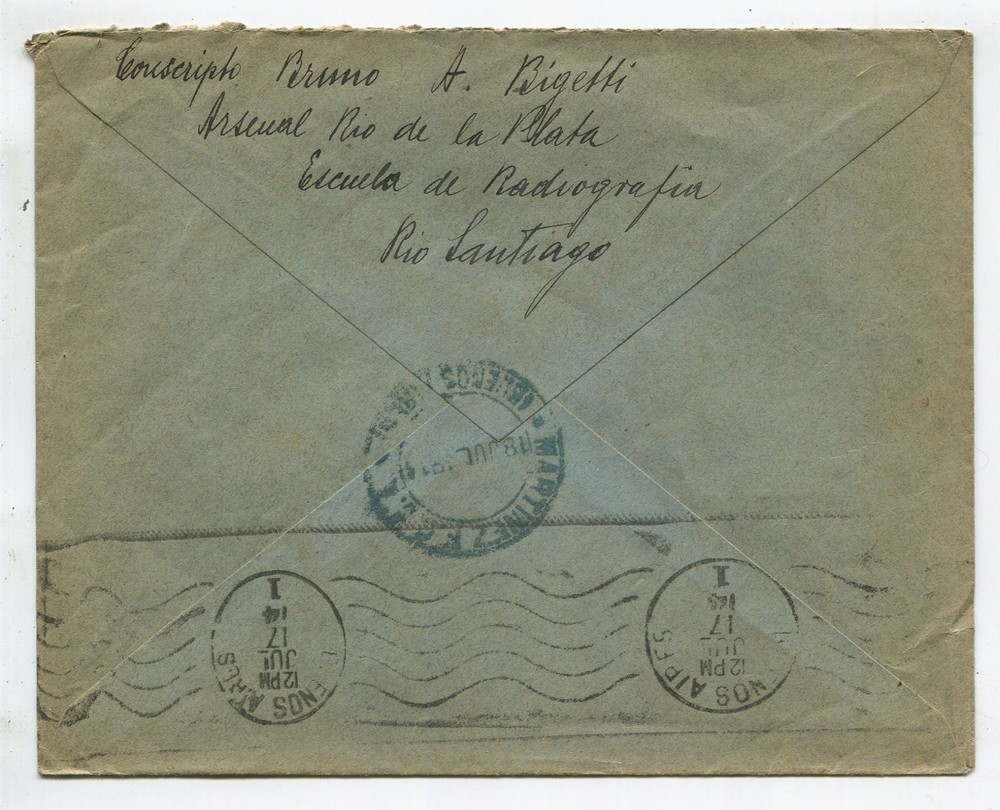 Conscripto Bruno A. Bigetti
Arsenal Rio de la Plata
Escuela de Radiografia
Rio Santiago
MARTINEZ
18 JUL
1
17
JUL
12 PM
ENOS AIRES
1
17
JUL
12 PM
NOS AIRES